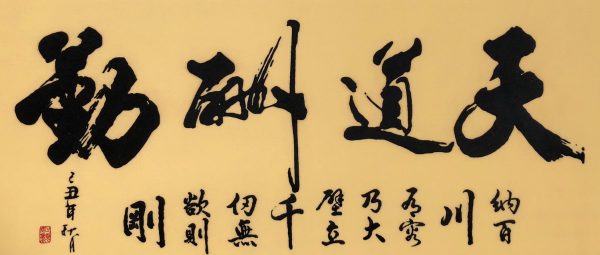 天道酬勤
納百
川
有容
乃大
壁立
千
仞無
欲則
剛
己丑年秋月